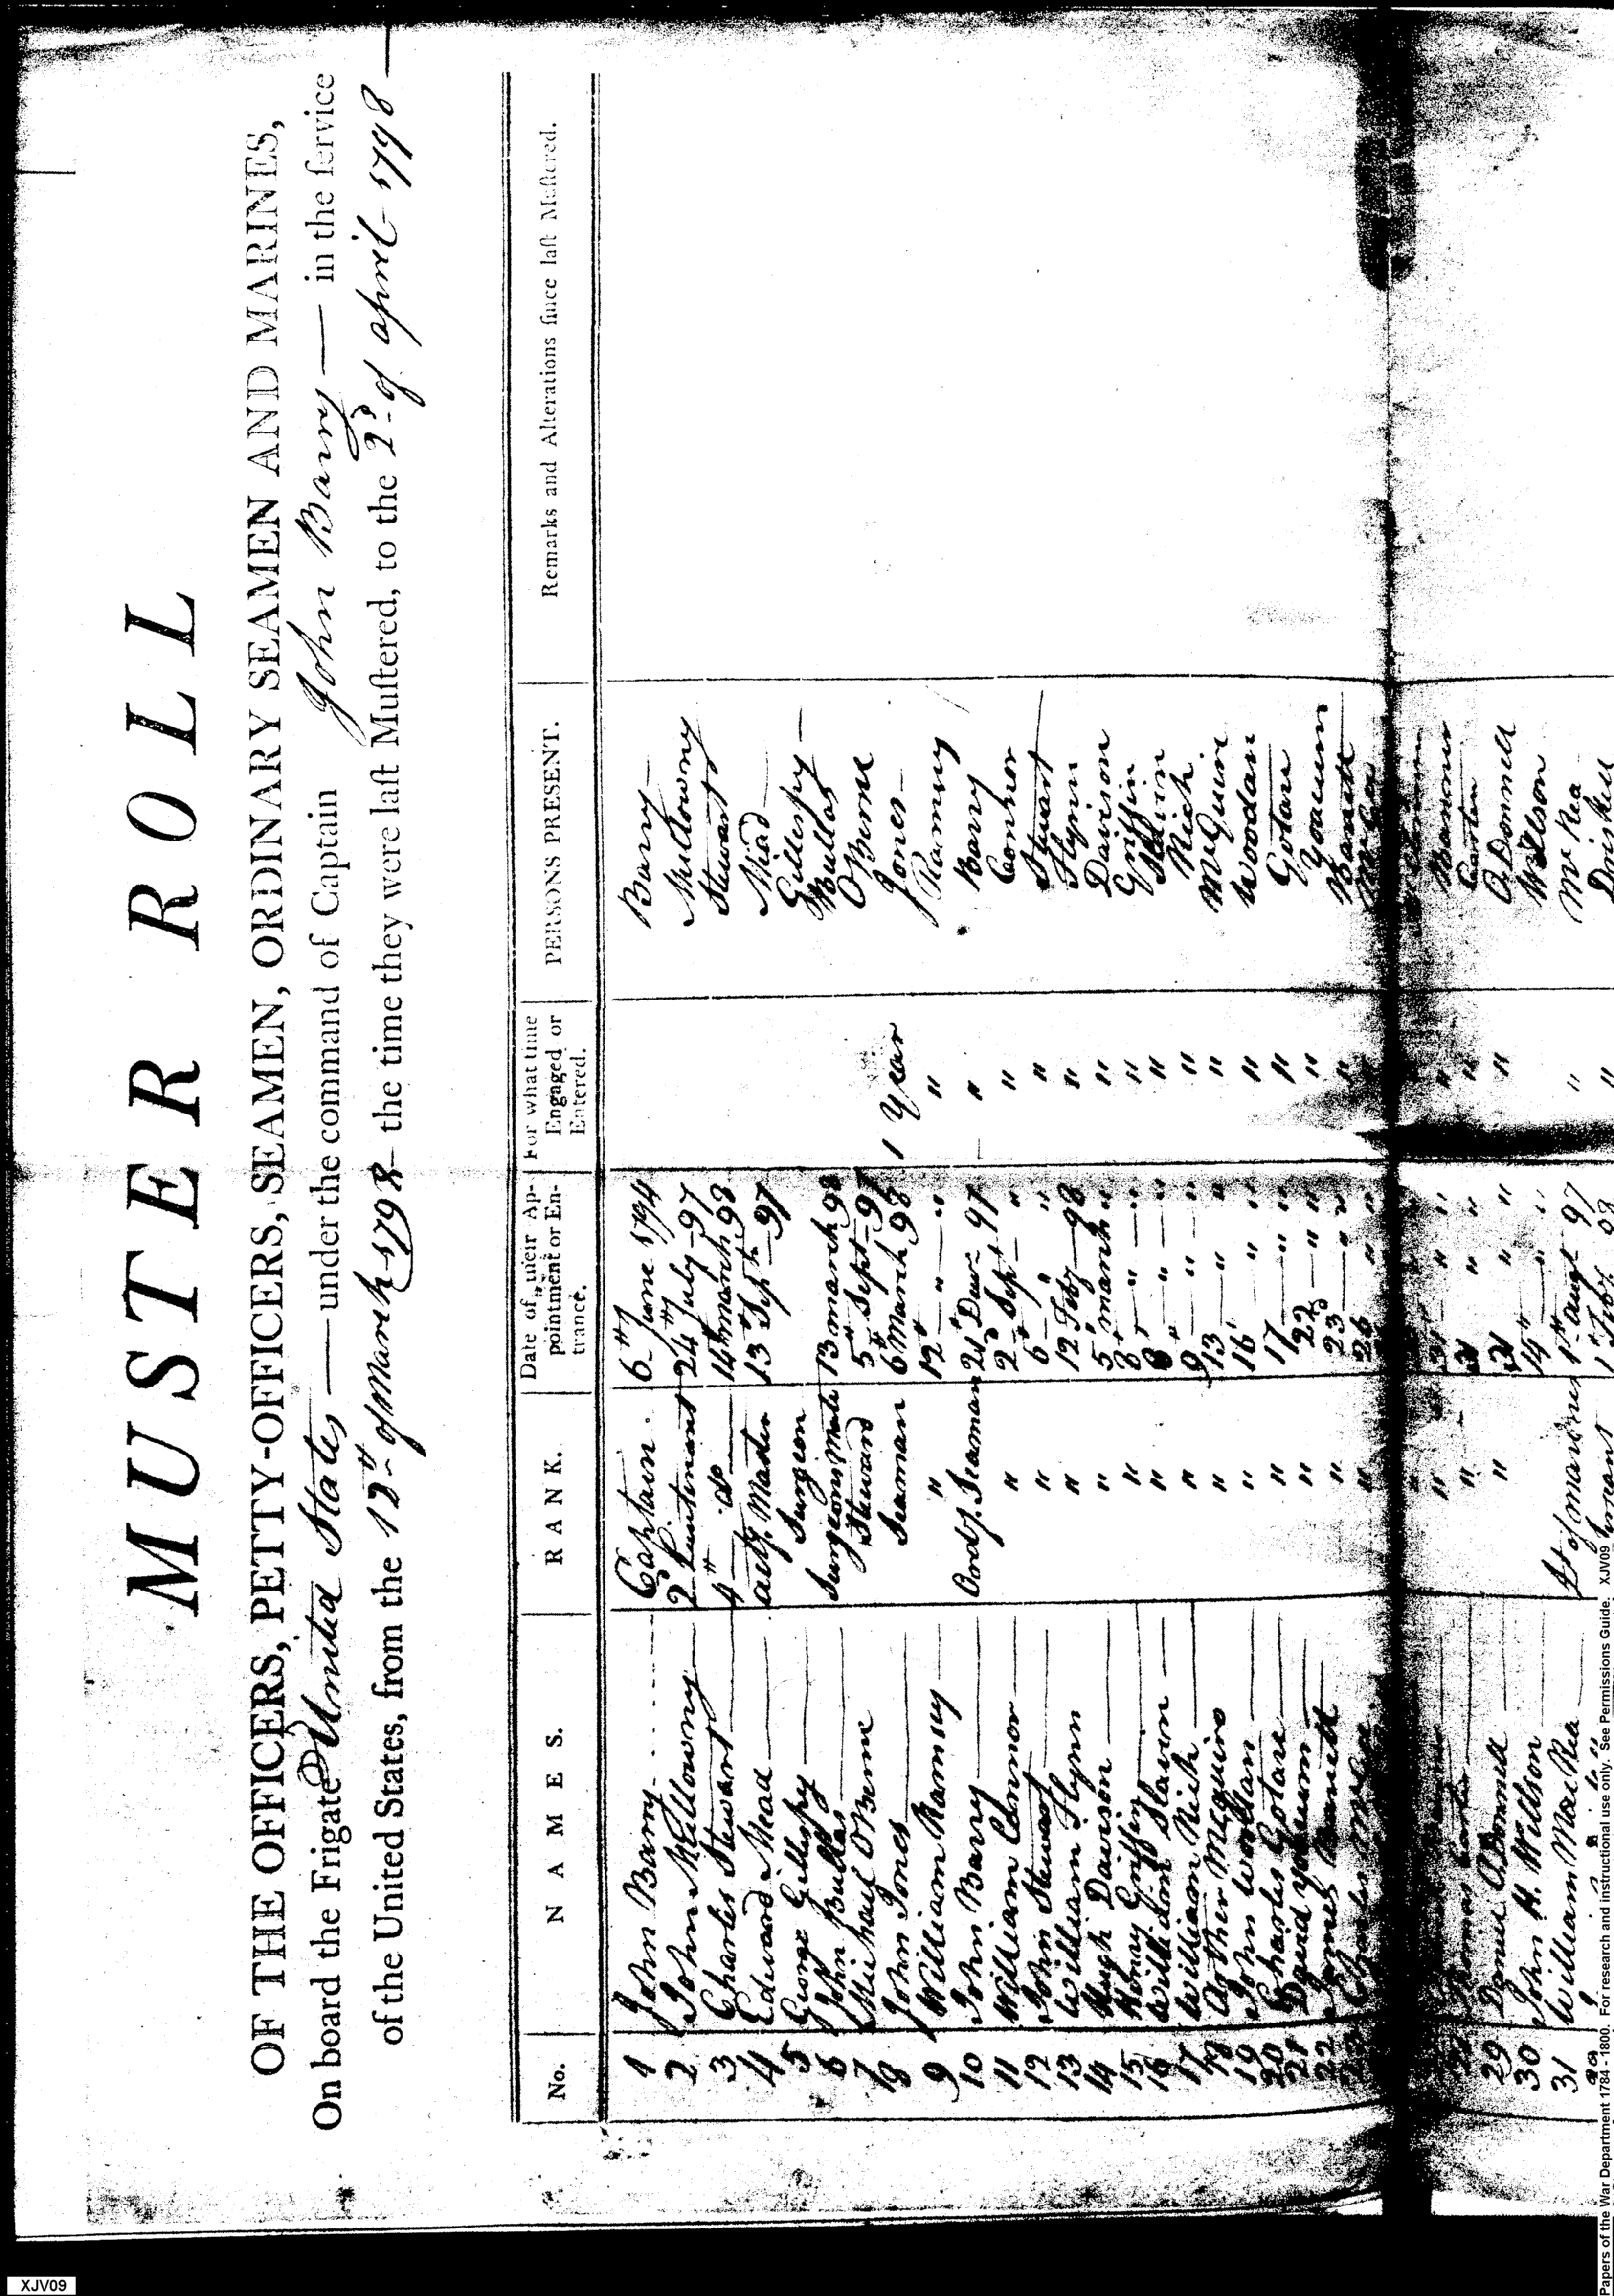 MUSTER ROLL
OF THE OFFICERS, PETTY-OFFICERS, SEAMEN, ORDINARY SEAMEN AND MARINES,
On board the Frigate United States — under the command of Captain John Barry — in the ſervice
of the United States, from the 12th of March 1798 the time they were laſt Muſtered, to the 2d of april 1798
No. NAMES. RANK. Date of their Ap-pointment or En-trance. For what time Engaged or Entered. PERSONS PRESENT. Remarks and Alterations ſince laſt Muſtered.
1 John Barry Captain 6th June 1794 Barry
2 John Mullowny 2d Lieutenant 24th July 97 Mullowny
3 Charles Stewart 4th do 14th march 98 Stewart
4 Edward Mead actg. Master 13th Sept 97 Mead
5 George Gillespy Surgeon Gillespy
6 John Bullus Surgeons mate 13 march 98 Bullus
7 Michael OBerne Steward 5th Sept 97 OBerne
8 John Jones Seaman 6 March 98 1 Year Jones
9 William Ramney " 12th " " " Ramney
10 John Barry Ordy. Seaman 21st 97 " Barry
11 William Connor " 2d Sept " " Connor
12 John Stewart " 6 " " " Stewart
13 William Flynn " 12 Feby 98 " Flynn
14 Hugh Davison " 5 march " " Davison
15 Griffin " 8 " " " Griffin
16 William Slaven " 8 " " " Slaven
17 William Rich " 9 " " " Rich
18 Arther Mcguiro " 13 " " " McGuire
19 John Woodan " 16 " " " Woodan
20 Charles Gotare " 17 " " " Gotare
21 David Yoacum " 22 " " " Yoacum
22 Barrett " 23d " " " Barrett
23 Charles " 26 " "
" " " "
Thomas Carten " " " " Carten
29 Daniel ODonnell " 31 " " " ODonnell
30 John H. Willson 14th " " Willson
31 William MacRea Lt of marines 1st augt 97 " McRea
1 Feby 98 "
Papers of the War Department 1784 - 1800. For research and instructional use only. See Permissions Guide. XJV09
XJV09